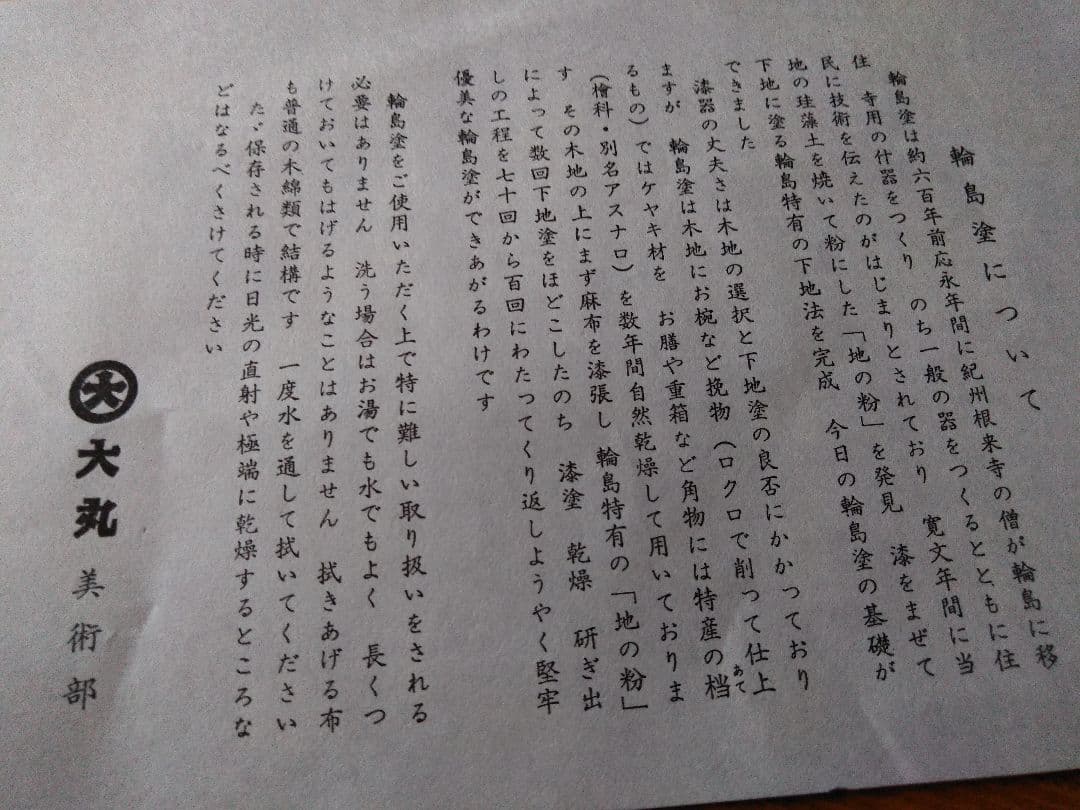 輪島塗について
輪島塗は約六百年前応永年間に紀州根来寺の僧が輪島に移
住 寺用の什器をつくり のち一般の器をつくるとともに住
民に技術を伝えたのがはじまりとされており 寛文年間に当
地の珪藻土を焼いて粉にした「地の粉」を発見 漆をまぜて
下地に塗る輪島特有の下地法を完成 今日の輪島塗の基礎が
できました
漆器の丈夫さは木地の選択と下地塗の良否にかかっており
ますが 輪島塗は木地にお椀など挽物(ロクロで削って仕上
るもの)ではケヤキ材を お膳や重箱など角物には特産の档
あて
(檜科・別名アスナロ)を数年間自然乾燥して用いておりま
す その木地の上にまず麻布を漆張し 輪島特有の「地の粉」
によって数回下地塗をほどこしたのち 漆塗 乾燥 研ぎ出
しの工程を七十回から百回にわたってくり返しようやく堅牢
優美な輪島塗ができあがるわけです
輪島塗をご使用いただく上で特に難しい取り扱いをされる
必要はありません 洗う場合はお湯でも水でもよく 長くつ
けておいてもはげるようなことはありません 拭きあげる布
も普通の木綿類で結構です 一度水を通して拭いてください
たゞ保存される時に日光の直射や極端に乾燥するところな
どはなるべくさけてください
大 大丸 美術部